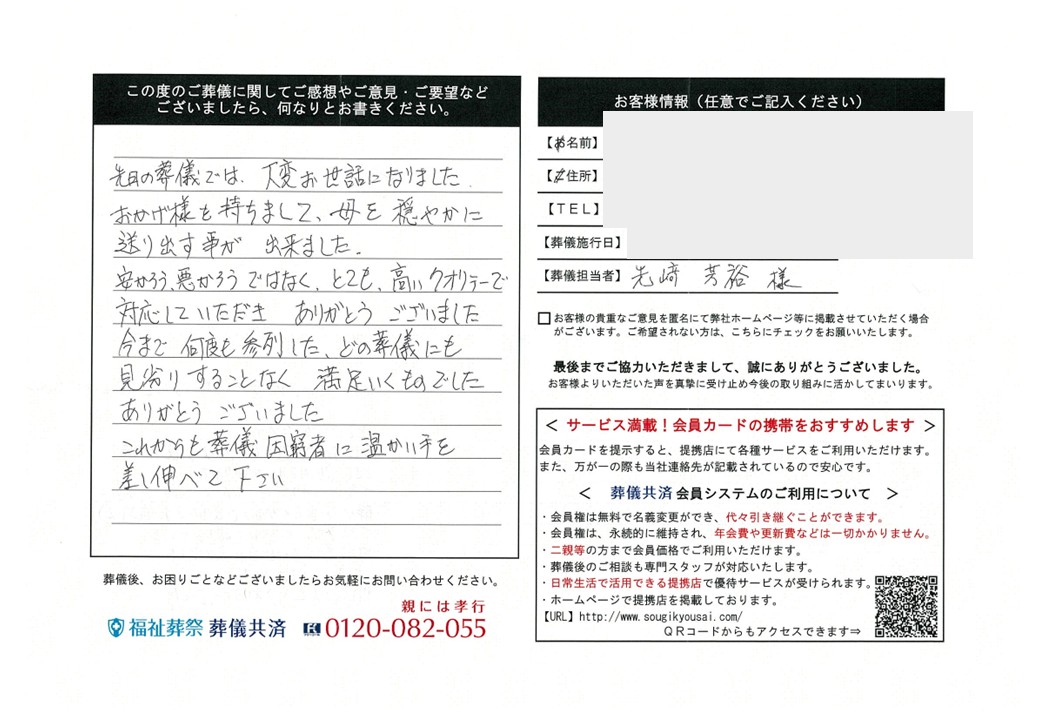 この度のご葬儀に関してご感想やご意見・ご要望など
ございましたら、何なりとお書きください。
先日の葬儀では、大変お世話になりました.
おかげ様を持ちまして、母を穏やかに
送り出す事が 出来ました.
安かろう、悪かろうではなく、とても、高いクオリテーで
対応していただき ありがとう ございました
今まで 何度も参列した、どの葬儀にも
見劣りすることなく 満足いくものでした
ありがとう ございました
これからも葬儀困窮者に温かい手を
差し伸べて下さい
葬儀後、お困りごとなどございましたらお気軽にお問い合わせください。
親には孝行
福祉葬祭 葬儀共済 0120-082-055
お客様情報（任意でご記入ください）
【お名前】
【ご住所】
【ＴＥＬ】
【葬儀施行日】
【葬儀担当者】先﨑 芳裕 様
□お客様の貴重なご意見を匿名にて弊社ホームページ等に掲載させていただく場合
がございます。ご希望されない方は、こちらにチェックをお願いいたします。
最後までご協力いただきまして、誠にありがとうございました。
お客様よりいただいた声を真摯に受け止め今後の取り組みに活かしてまいります。
＜ サービス満載！会員カードの携帯をおすすめします ＞
会員カードを提示すると、提携店にて各種サービスをご利用いただけます。
また、万が一の際も当社連絡先が記載されているので安心です。
＜ 葬儀共済会員システムのご利用について ＞
・会員権は無料で名義変更ができ、代々引き継ぐことができます。
・会員権は、永続的に維持され、年会費や更新費などは一切かかりません。
・二親等の方まで会員価格でご利用いただけます。
・葬儀後のご相談も専門スタッフが対応いたします。
・日常生活で活用できる提携店で優待サービスが受けられます。
・ホームページで提携店を掲載しております。
【URL】http://www.sougikyousai.com/
ＱＲコードからもアクセスできます⇒